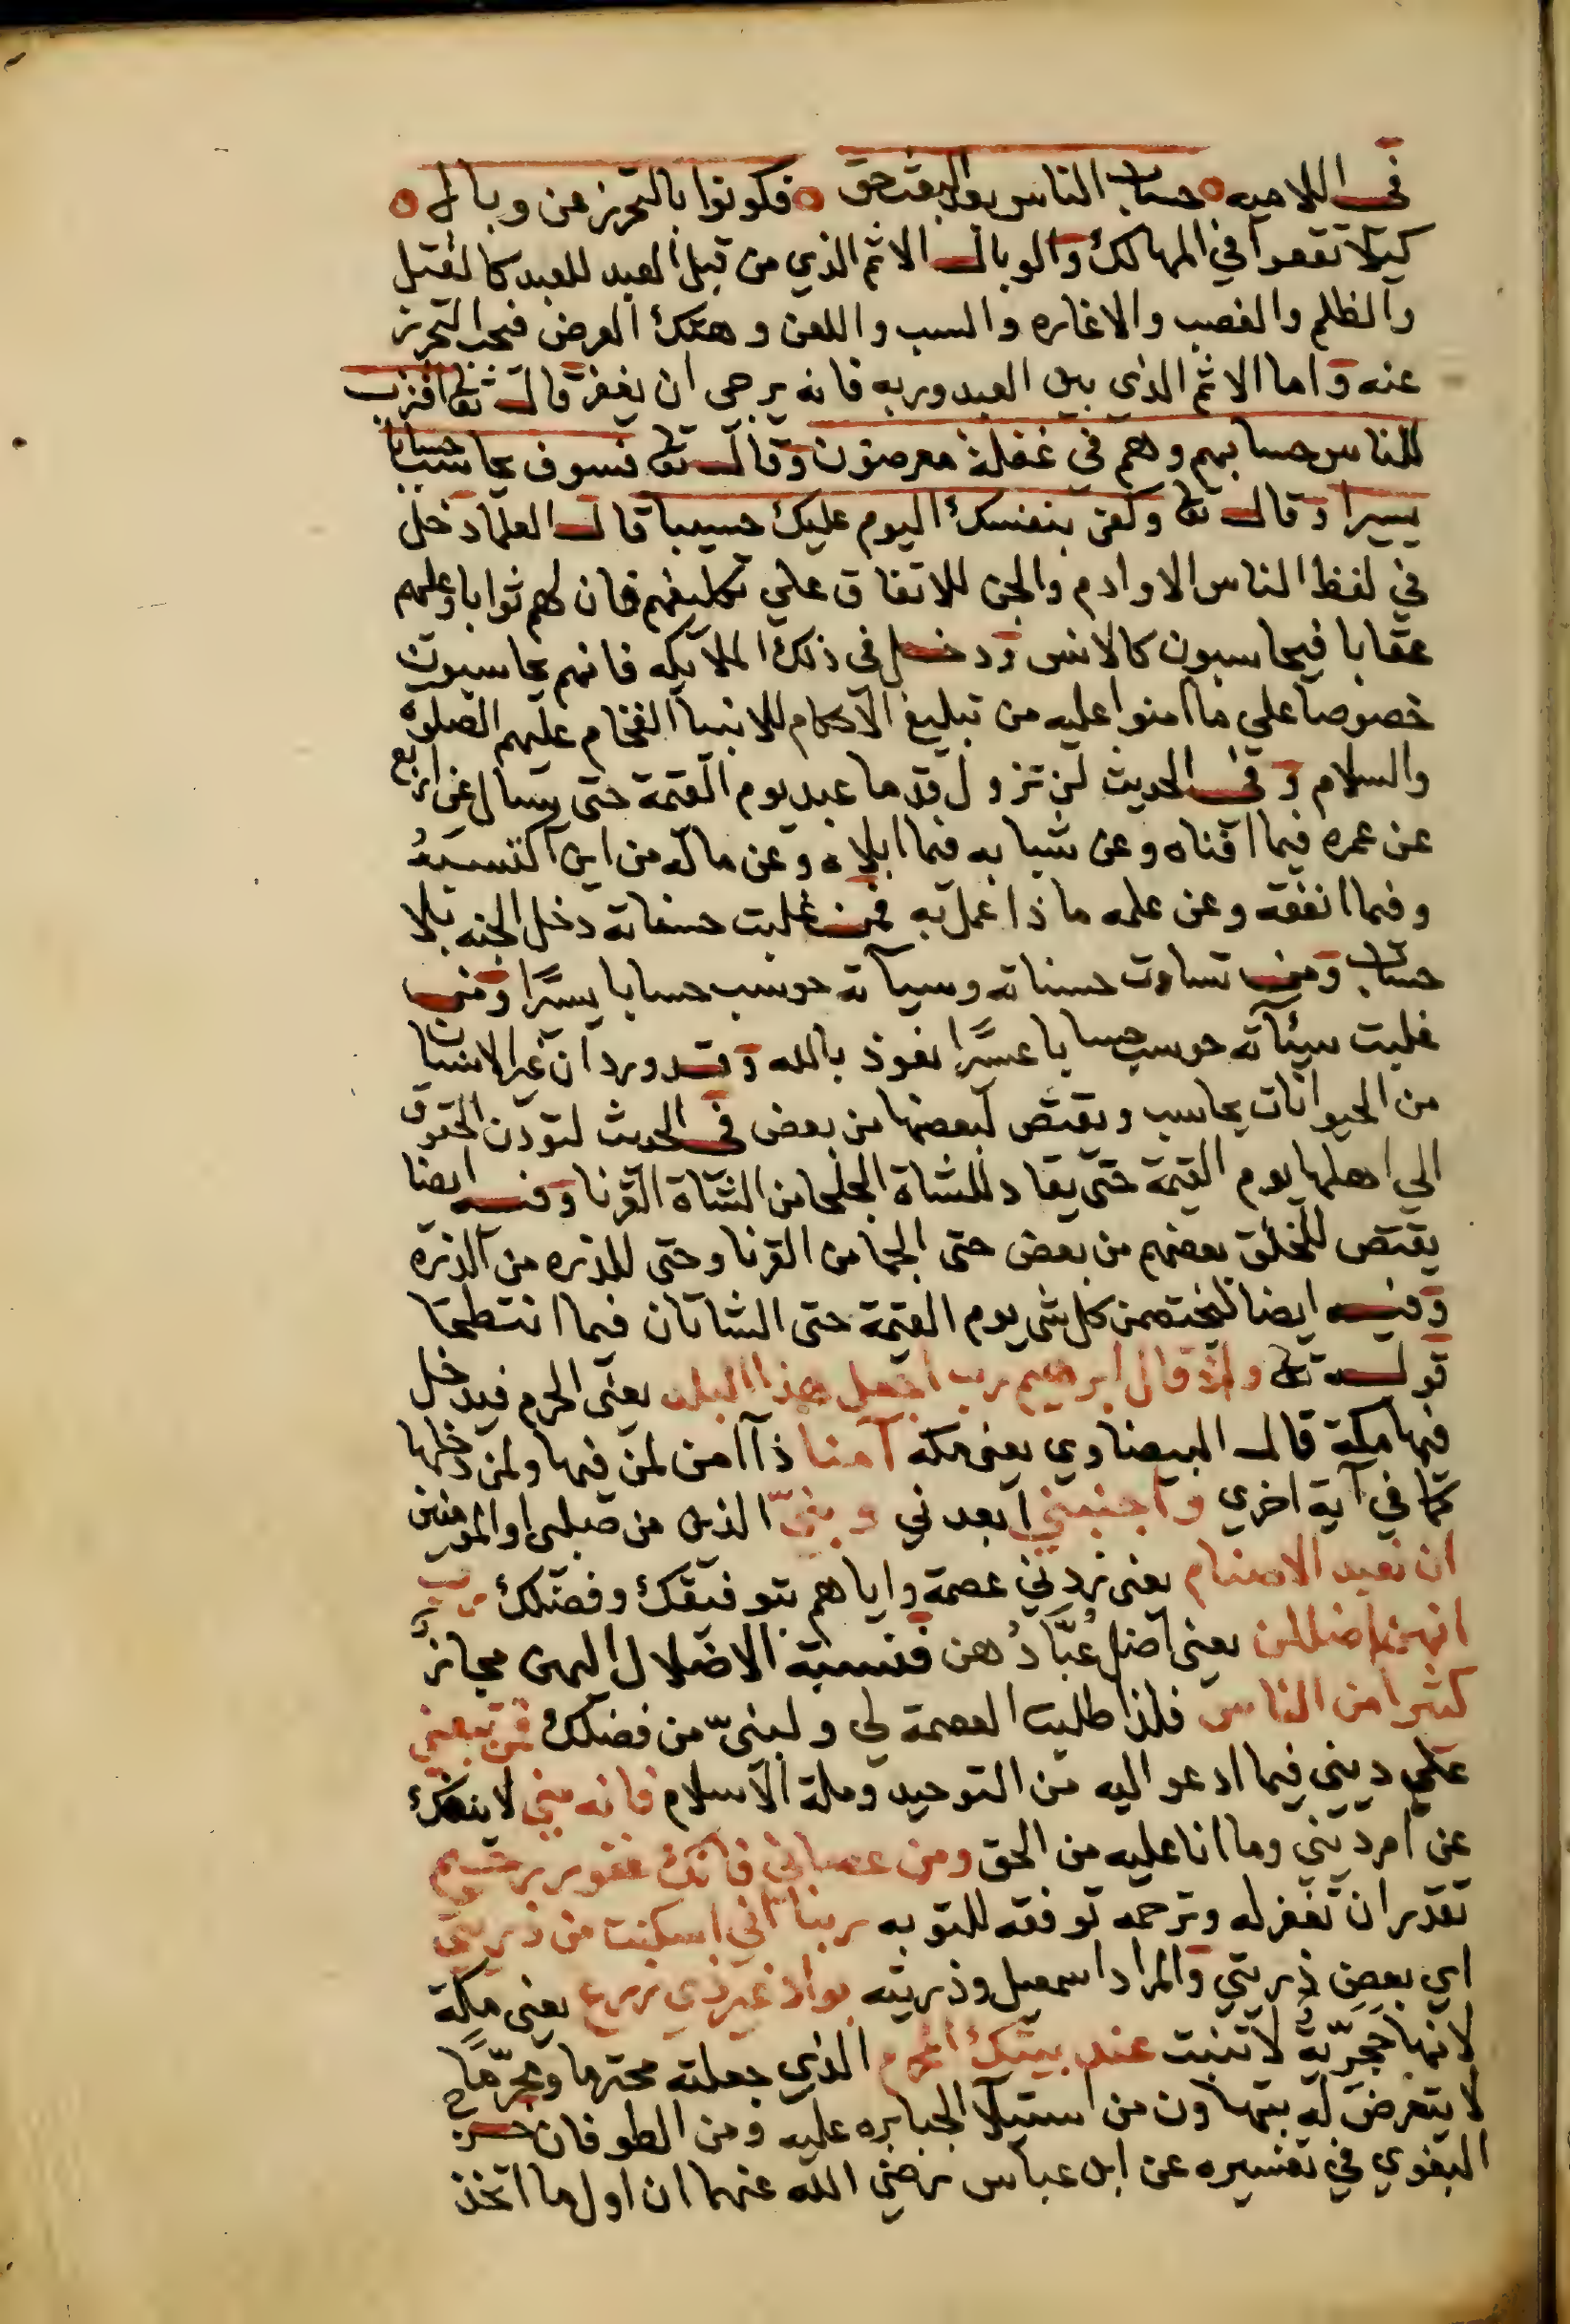 في اللاميه ه حساب الناس بعد البعث حق ه فكونوا بالتحرز عن وبال ه
كيلا تقعوا في المهالك والوبال الاثم الذي من قبل العبد للعبد كالقتل
والظلم والغصب والاغاره والسب واللعن وهتك العرض فيجب التحرز
عنه واما الاثم الذي بين العبد وربه فانه يرجى ان يغفر قال تعا اقترب
للناس حسابهم وهم في غفلة معرضون وقال تعا فسوف يحاسب حسابا
يسيرا وقال تعا وكفى بنفسك اليوم عليك حسيبا قال العلما دخل
في لفظ الناس الاوادم والجن للاتفاق علي تكليفهم فان لهم ثوابا وعليهم
عقابا فيحاسبون كالانس ودخل في ذلك الملايكه فانهم يحاسبون
خصوصا علي ما امنوا عليه من تبليغ الاحكام للانبيا الفخام عليهم الصلوة
والسلام وفي الحديث لن تزول قدما عبد يوم القيمة حتى يسال عن اربع
عن عمره فيما افناه وعن شبابه فيما ابلاه وعن ماله من اين اكتسبه
وفيما انفقه وعن علمه ماذا عمل به فمن غلبت حسناته دخل الجنه بلا
حساب ومن تساوت حسناته وسيآته حوسب حسابا يسيرا ومن
غلبت سيئآته حوسب حسابا عسيرا نعوذ بالله وقد ورد ان غير الانسان
من الحيوانات يحاسب ويقتص لبعضها من بعض في الحديث لتودن الحقوق
الي اهلها يوم القيمة حتى يقاد للشاة الجلحا من الشاة القرنا وفيه ايضا
يقتص للخلق بعضهم من بعض حتى الجما من القرنا وحتى للذره من الذره
وفيه ايضا ليختصمن كل شي يوم القيمة حتى الشاتان فيما انتطحتا
قوله تعا واذ قال ابرهيم رب اجعل هذا البلد يعني الحرم فيدخل
فيها مكة قال البيضاوي يعني مكه آمنا ذا آمن لمن فيها ولمن دخلها
كما في آية اخري واجنبني ابعدني وبنيّ الذين من صلبي او المومنين
ان نعبد الاصنام يعني زدني عصمة واياهم بتوفيقك وفضلك رب
انهن اضللن يعني اضل عُبَّادُهن فنسبة الاضلال اليهن مجاز
كثيرا من الناس فلذا طلبت العصمة لي ولبنيّ من فضلك فمن تبعني
علي ديني فيما ادعو اليه من التوحيد وملة الاسلام فانه مني لا ينفك
عن امر ديني وما انا عليه من الحق ومن عصاني فانك غفور رحيم
تقدر ان تغفر له وترحمه توفقه للتوبه ربنا اني اسكنت من ذريتي
اي بعض ذريتي والمراد اسمعيل وذريته بواد غير ذي زرع يعني مكة
لانها حجريّة لا تنبت عند بيتك المحرم الذي جعلته محترما ومحرّما
لا يتعرض له بتهاون من استيلا الجبابره عليه ومن الطوفان خرج
البغوي في تفسيره عن ابن عباس رضي الله عنهما ان اول ما اتخذ